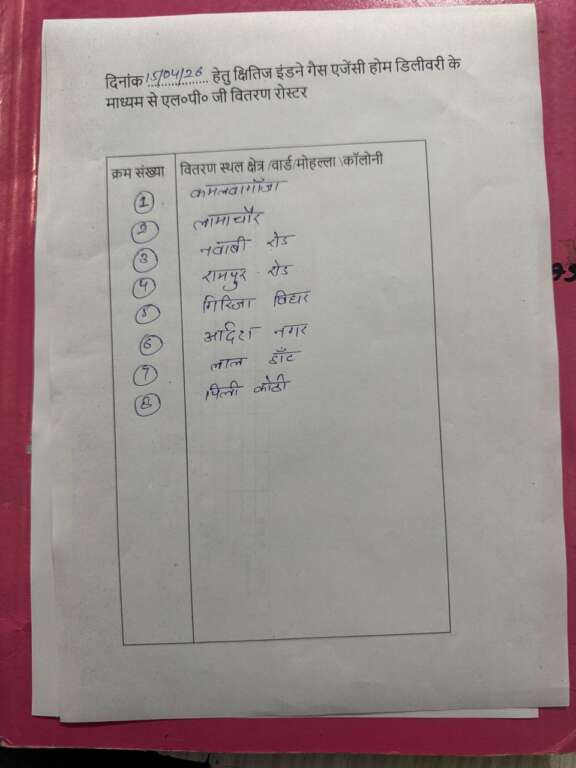 दिनांक 15/04/26 हेतु क्षितिज इंडने गैस एजेंसी होम डिलीवरी के
माध्यम से एल०पी० जी वितरण रोस्टर
क्रम संख्या वितरण स्थल क्षेत्र /वार्ड/मोहल्ला \कॉलोनी
1 कमलवागाँजा
2 लामाचौर
3 नवाबी रोड
4 रामपुर रोड
5 गिरिजा विहार
6 आर्दश नगर
7 लाल डाँट
8 पिली कोठी